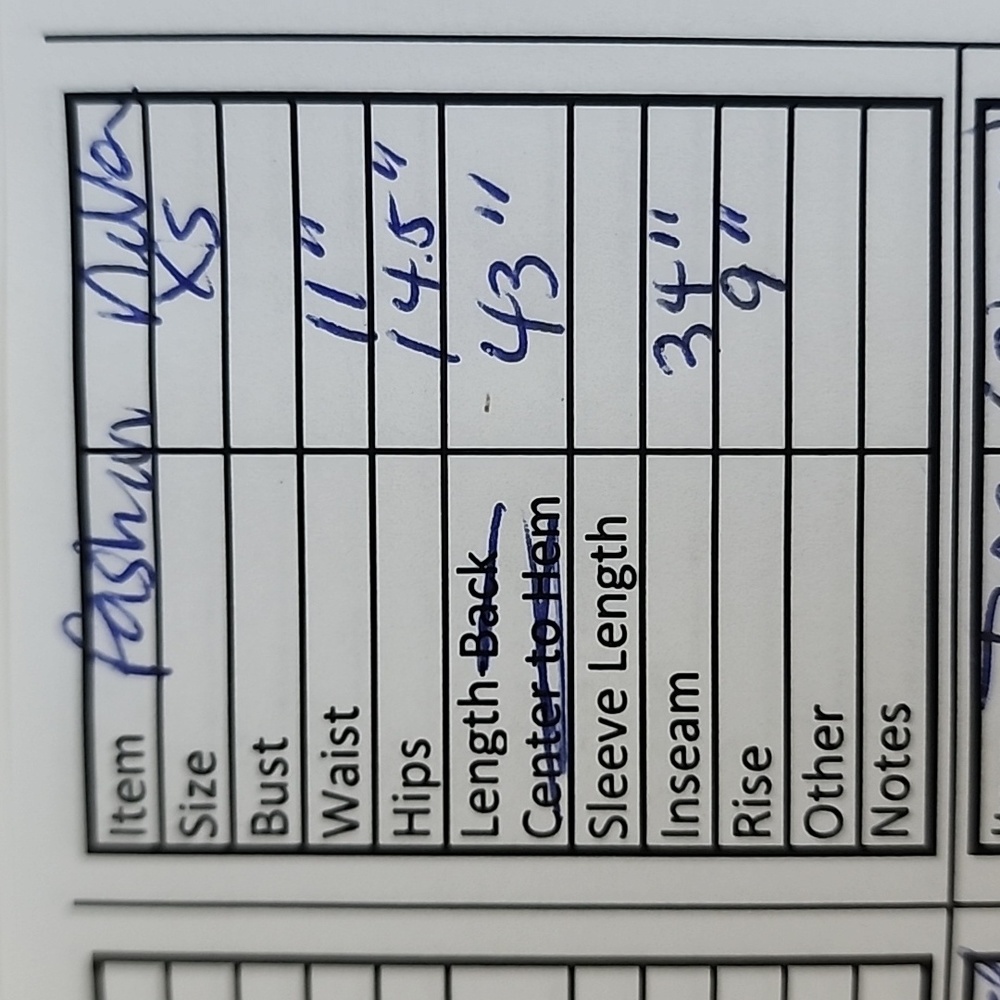 Item Fashion Nova
Size XS
Bust
Waist 11"
Hips 14.5"
Length Back 43"
Center to Hem
Sleeve Length
Inseam 34"
Rise 9"
Other
Notes